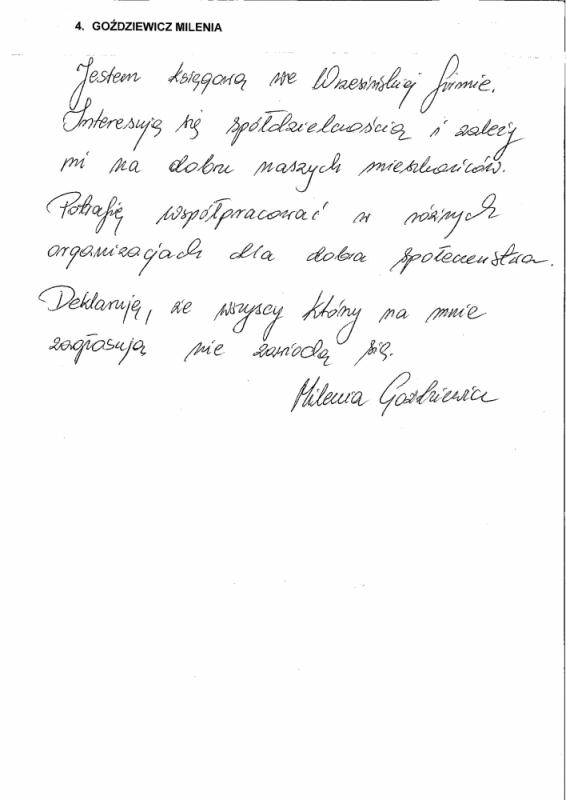 4. GOŹDZIEWICZ MILENIA
Jestem księgową we Wrzesińskiej firmie.
Interesują się spółdzielczością i zależy
mi na dobru naszych mieszkańców.
Potrafię współpracować w różnych
organizacjach dla dobra społeczeństwa.
Deklaruję, że wszyscy który na mnie
zagłosują nie zawiodą się.
Milenia Goździewicz